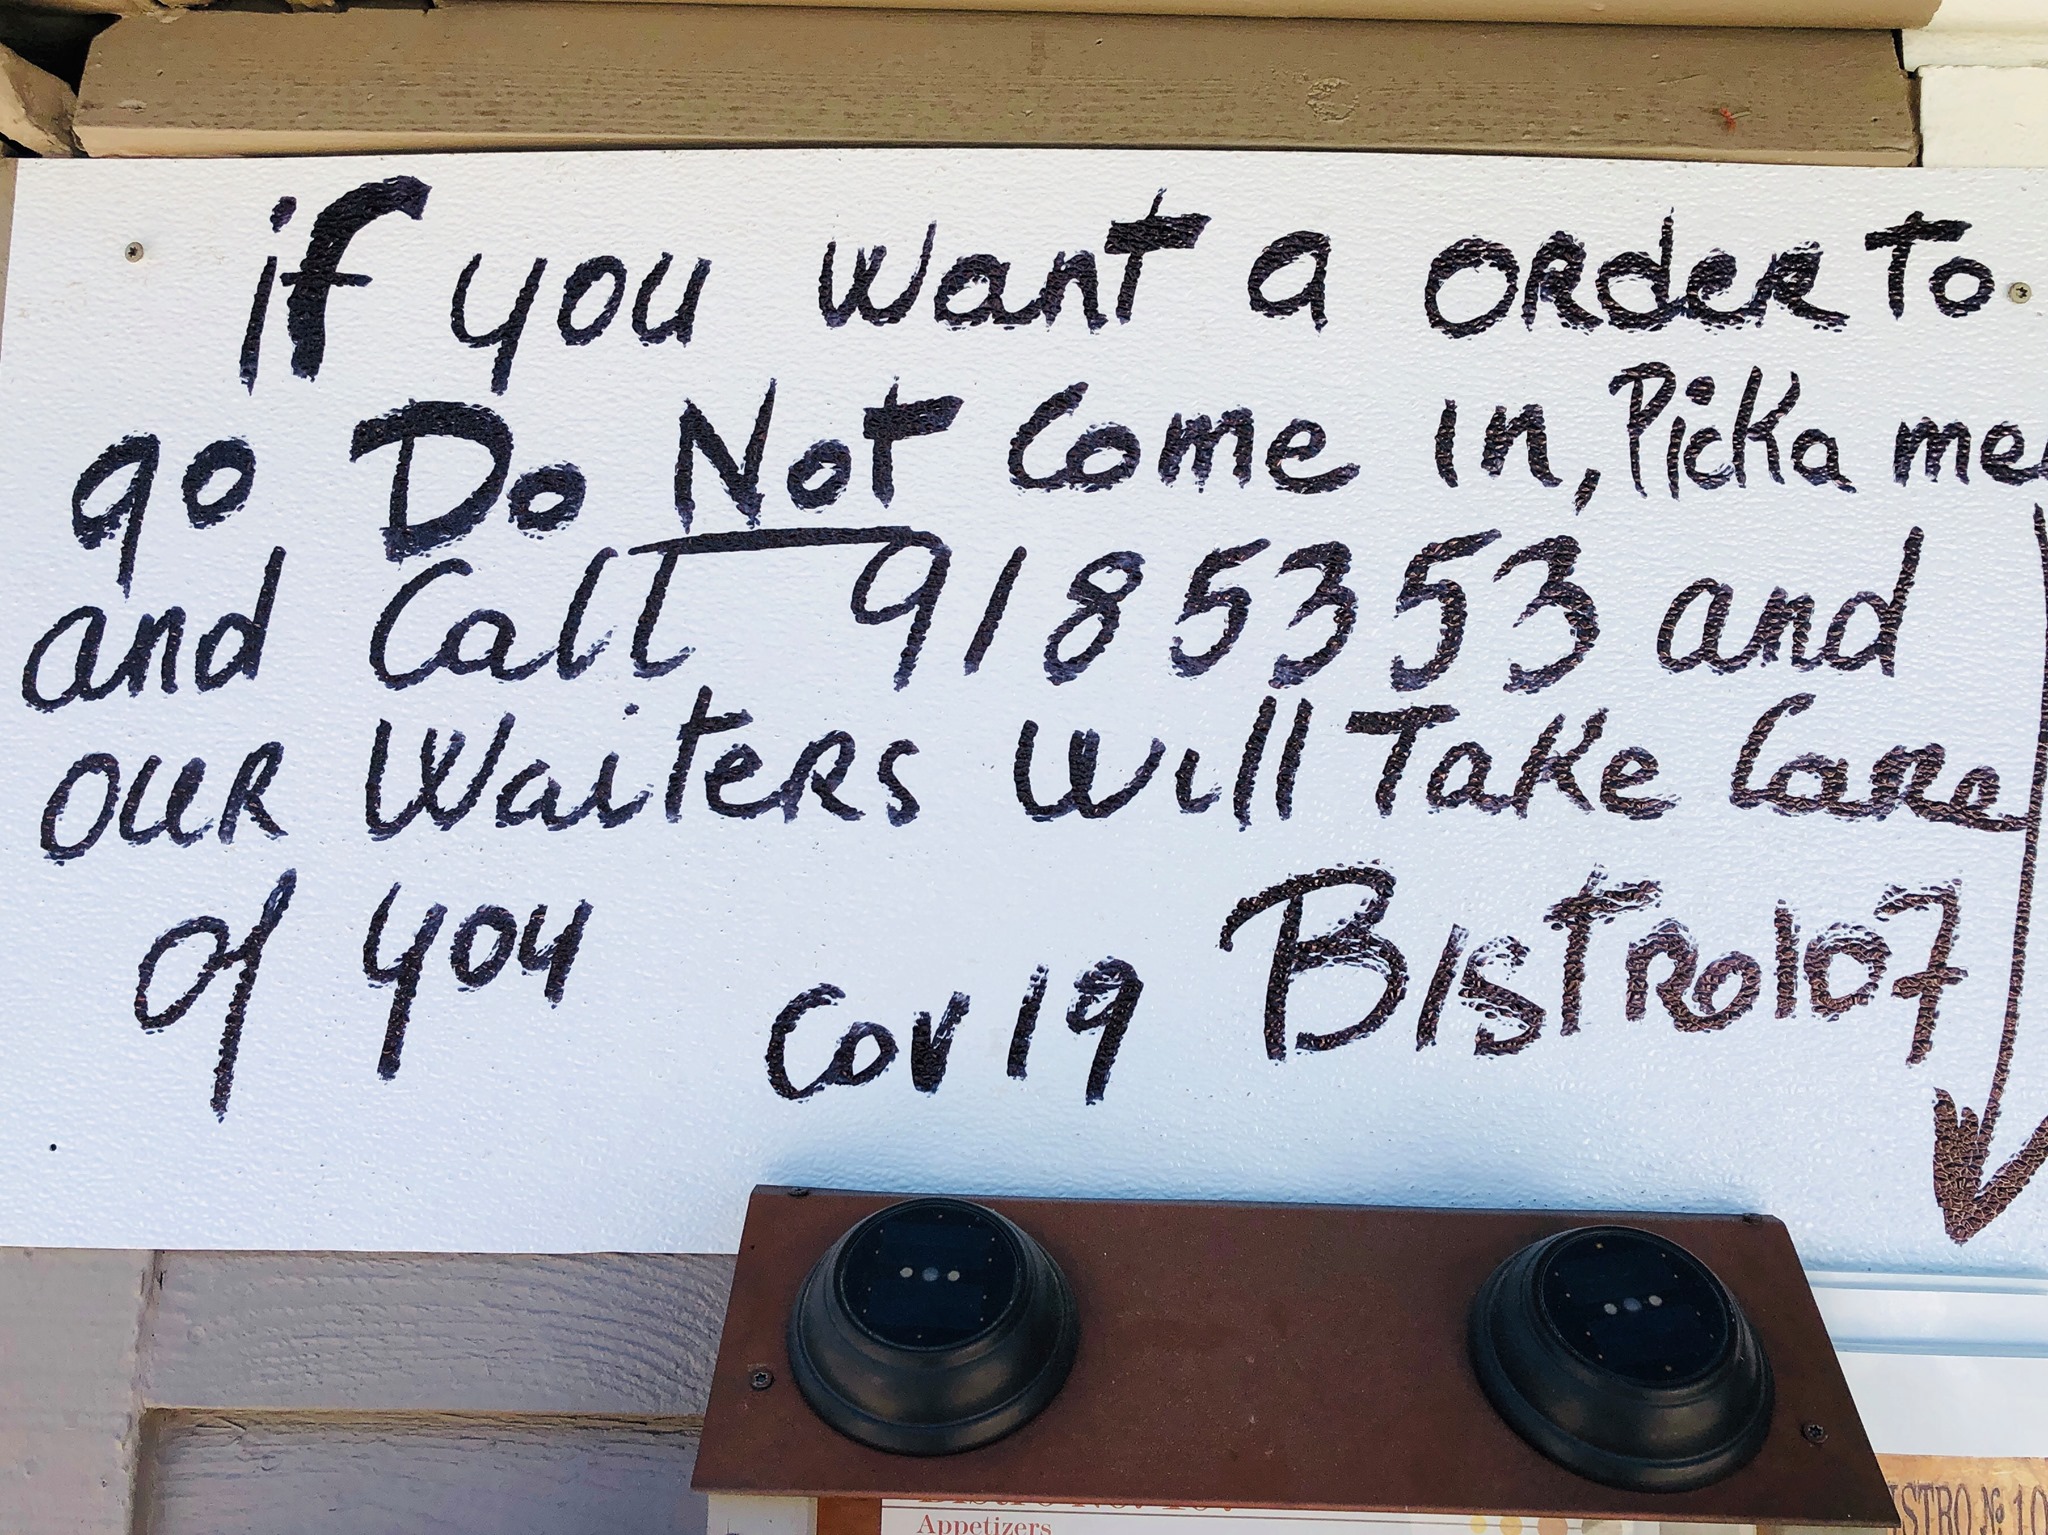 if you want a order To
go Do Not Come in, Pick a me
and Call 9185353 and
our Waiters Will Take Care
of you
Cov 19 Bistro107
Appetizers